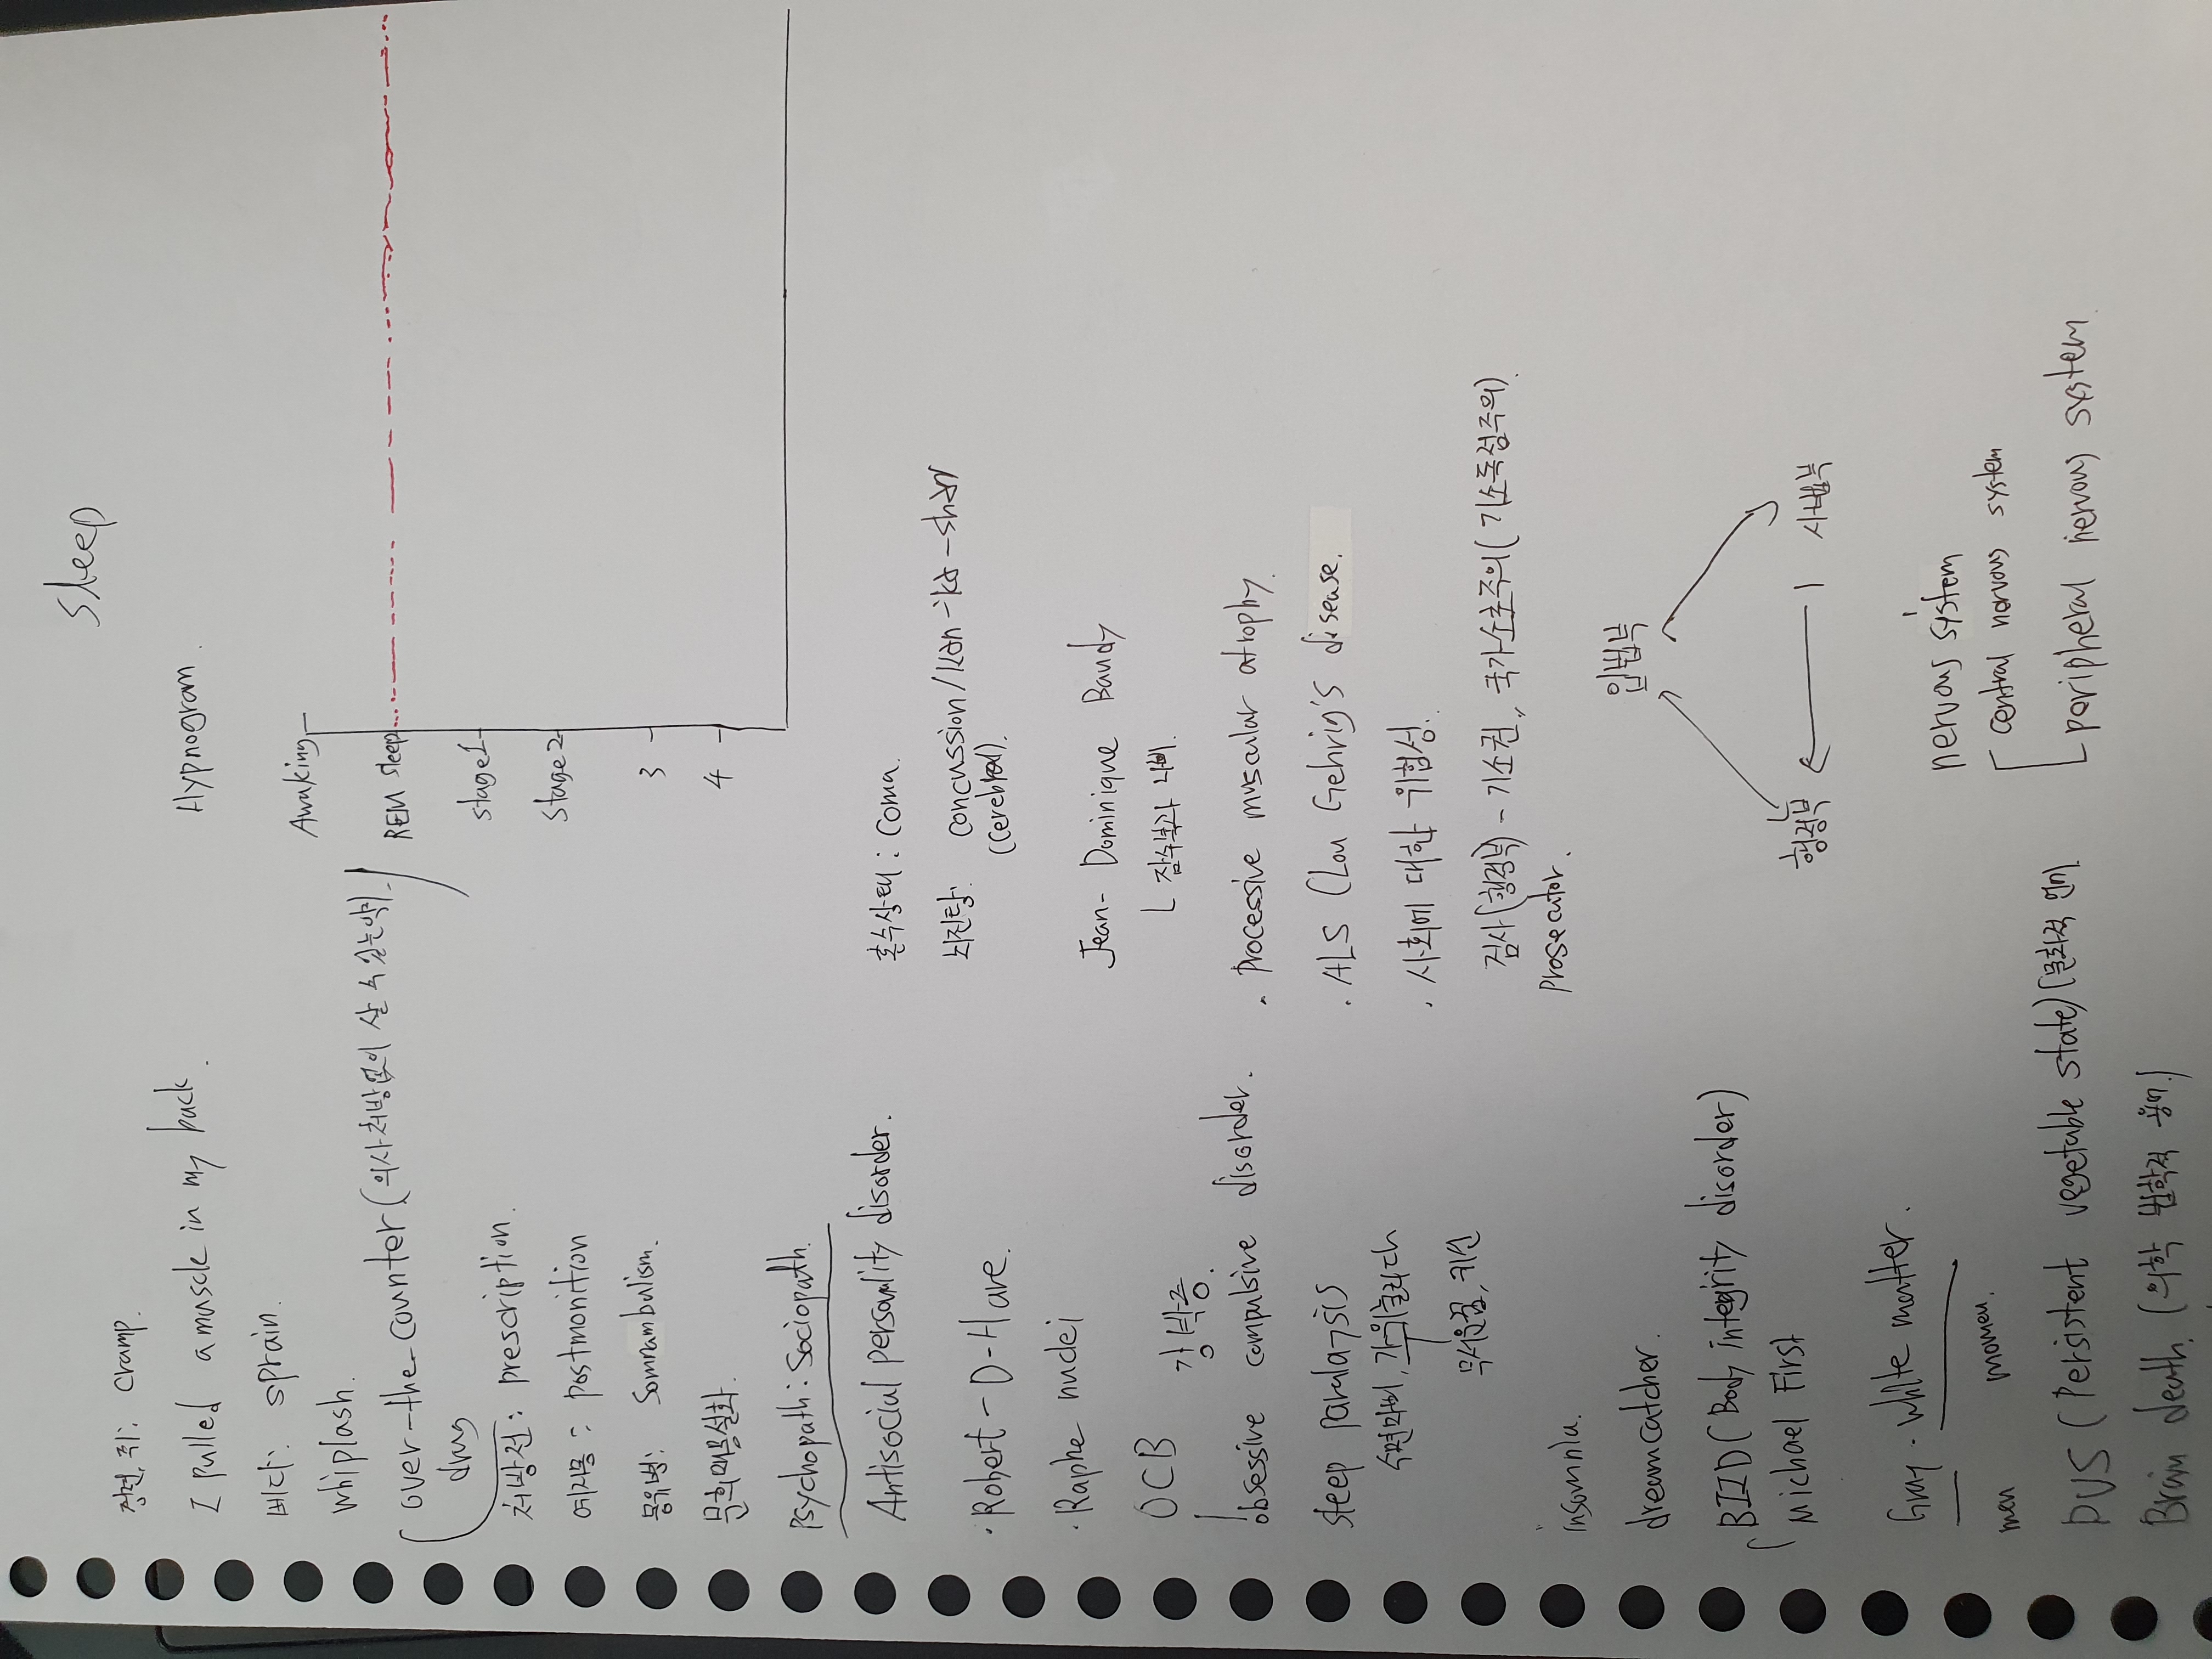 Sleep
경련, 쥐: cramp.
I pulled a muscle in my back.
삐다: sprain.
whiplash.
over-the-counter (의사처방없이 살 수 있는약)
drug
처방전: prescription.
예지몽: postmonition
몽유병: Somnambulism.
psychopath: Sociopath.
Antisocial personality disorder.
· Robert-D-Hare.
· Raphe nuclei
OCB 강박증.
obsessive compulsive disorder.
sleep paralysis
수면마비, 가위눌리다
무서운꿈, 귀신
insomnia.
dreamcatcher.
BIID (Body integrity disorder)
Michael First
Gray · White matter.
men women.
PVS (Persistent vegetable state)
Brain death. (의학 법학적 용어.)
Hypnogram.
Awaking
REM sleep
stage1
stage2
3
4
혼수상태: Coma.
뇌진탕: concussion/kən-'kə-shən
(cerebral).
Jean-Dominique Baudy
잠수복과 나비.
· Processive muscular atrophy.
· ALS (Lou Gehrig's disease.
· 사회에 대한 위험성.
검사(행정부) - 기소권, 국가소추주의 (기소독점주의).
prosecutor.
입법부
행정부 사법부
nervous system
central nervous system
peripheral nervous system.